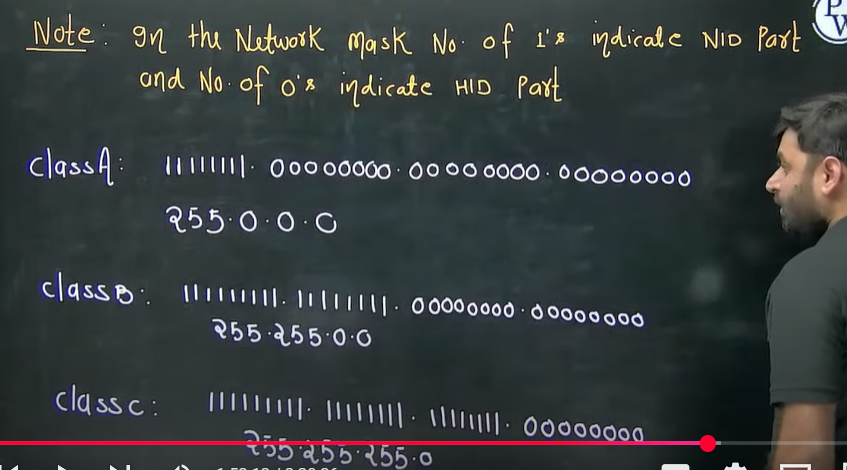 Note: In the Network Mask No. of 1's indicate NID Part
and No. of 0's indicate HID Part
class A: 11111111. 00000000. 00000000. 00000000
255.0.0.0
class B: 11111111. 11111111. 00000000. 00000000
255.255.0.0
class C: 11111111. 11111111. 11111111. 00000000
255.255.255.0